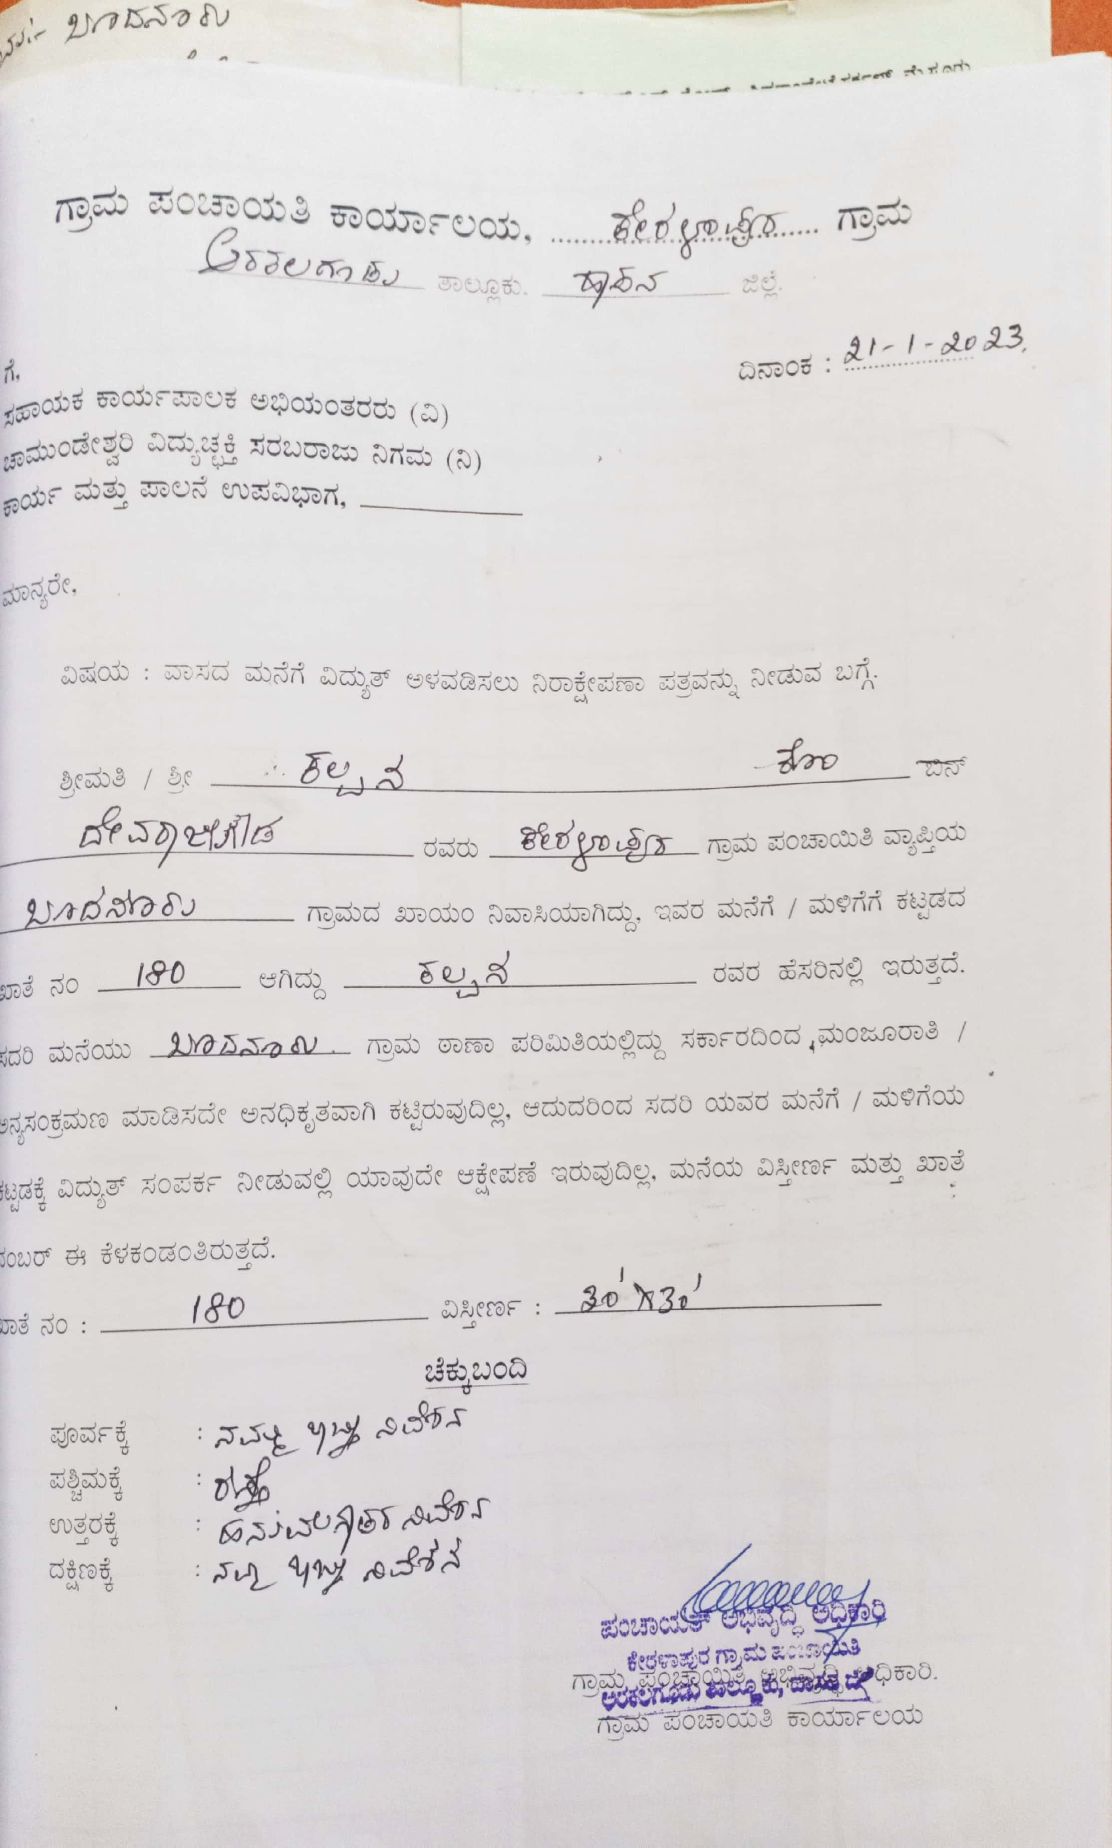 ಬೂದನೂರು
ಗ್ರಾಮ ಪಂಚಾಯತಿ ಕಾರ್ಯಾಲಯ, ಕೇರಳಾಪುರ ಗ್ರಾಮ
ಅರಕಲಗೂಡು ತಾಲ್ಲೂಕು. ಹಾಸನ ಜಿಲ್ಲೆ.
ದಿನಾಂಕ : 21-1-2023.
ಗೆ,
ಸಹಾಯಕ ಕಾರ್ಯಪಾಲಕ ಅಭಿಯಂತರರು (ವಿ)
ಚಾಮುಂಡೇಶ್ವರಿ ವಿದ್ಯುಚ್ಛಕ್ತಿ ಸರಬರಾಜು ನಿಗಮ (ನಿ)
ಕಾರ್ಯ ಮತ್ತು ಪಾಲನೆ ಉಪವಿಭಾಗ,
ಮಾನ್ಯರೇ,
ವಿಷಯ : ವಾಸದ ಮನೆಗೆ ವಿದ್ಯುತ್ ಅಳವಡಿಸಲು ನಿರಾಕ್ಷೇಪಣಾ ಪತ್ರವನ್ನು ನೀಡುವ ಬಗ್ಗೆ.
ಶ್ರೀಮತಿ / ಶ್ರೀ ಕಲ್ಪನ ಕೋಂ ಬಿನ್
ದೇವರಾಜೇಗೌಡ ರವರು ಕೇರಳಾಪುರ ಗ್ರಾಮ ಪಂಚಾಯಿತಿ ವ್ಯಾಪ್ತಿಯ
ಬೂದನೂರು ಗ್ರಾಮದ ಖಾಯಂ ನಿವಾಸಿಯಾಗಿದ್ದು, ಇವರ ಮನೆಗೆ / ಮಳಿಗೆಗೆ ಕಟ್ಟಡದ
ಖಾತೆ ನಂ 180 ಆಗಿದ್ದು ಕಲ್ಪನ ರವರ ಹೆಸರಿನಲ್ಲಿ ಇರುತ್ತದೆ.
ಸದರಿ ಮನೆಯು ಬೂದನೂರು ಗ್ರಾಮ ಠಾಣಾ ಪರಿಮಿತಿಯಲ್ಲಿದ್ದು ಸರ್ಕಾರದಿಂದ ಮಂಜೂರಾತಿ /
ಅನ್ಯಸಂಕ್ರಮಣ ಮಾಡಿಸದೇ ಅನಧಿಕೃತವಾಗಿ ಕಟ್ಟಿರುವುದಿಲ್ಲ, ಆದುದರಿಂದ ಸದರಿ ಯವರ ಮನೆಗೆ / ಮಳಿಗೆಯ
ಕಟ್ಟಡಕ್ಕೆ ವಿದ್ಯುತ್ ಸಂಪರ್ಕ ನೀಡುವಲ್ಲಿ ಯಾವುದೇ ಆಕ್ಷೇಪಣೆ ಇರುವುದಿಲ್ಲ, ಮನೆಯ ವಿಸ್ತೀರ್ಣ ಮತ್ತು ಖಾತೆ
ನಂಬರ್ ಈ ಕೆಳಕಂಡಂತಿರುತ್ತದೆ.
ಖಾತೆ ನಂ : 180 ವಿಸ್ತೀರ್ಣ : 30'X30'
ಚೆಕ್ಕುಬಂದಿ
ಪೂರ್ವಕ್ಕೆ : ನಮ್ಮ ನಿವೇಶನ
ಪಶ್ಚಿಮಕ್ಕೆ : ರಸ್ತೆ
ಉತ್ತರಕ್ಕೆ : ನಿವೇಶನ
ದಕ್ಷಿಣಕ್ಕೆ : ನಿವೇಶನ
ಪಂಚಾಯತ್ ಅಭಿವೃದ್ಧಿ ಅಧಿಕಾರಿ
ಕೇರಳಾಪುರ ಗ್ರಾಮ ಪಂಚಾಯಿತಿ
ಗ್ರಾಮ ಪಂಚಾಯಿತಿ ಅಭಿವೃದ್ಧಿ ಅಧಿಕಾರಿ.
ಅರಕಲಗೂಡು ತಾಲ್ಲೂಕು, ಹಾಸನ ಜಿಲ್ಲೆ
ಗ್ರಾಮ ಪಂಚಾಯತಿ ಕಾರ್ಯಾಲಯ